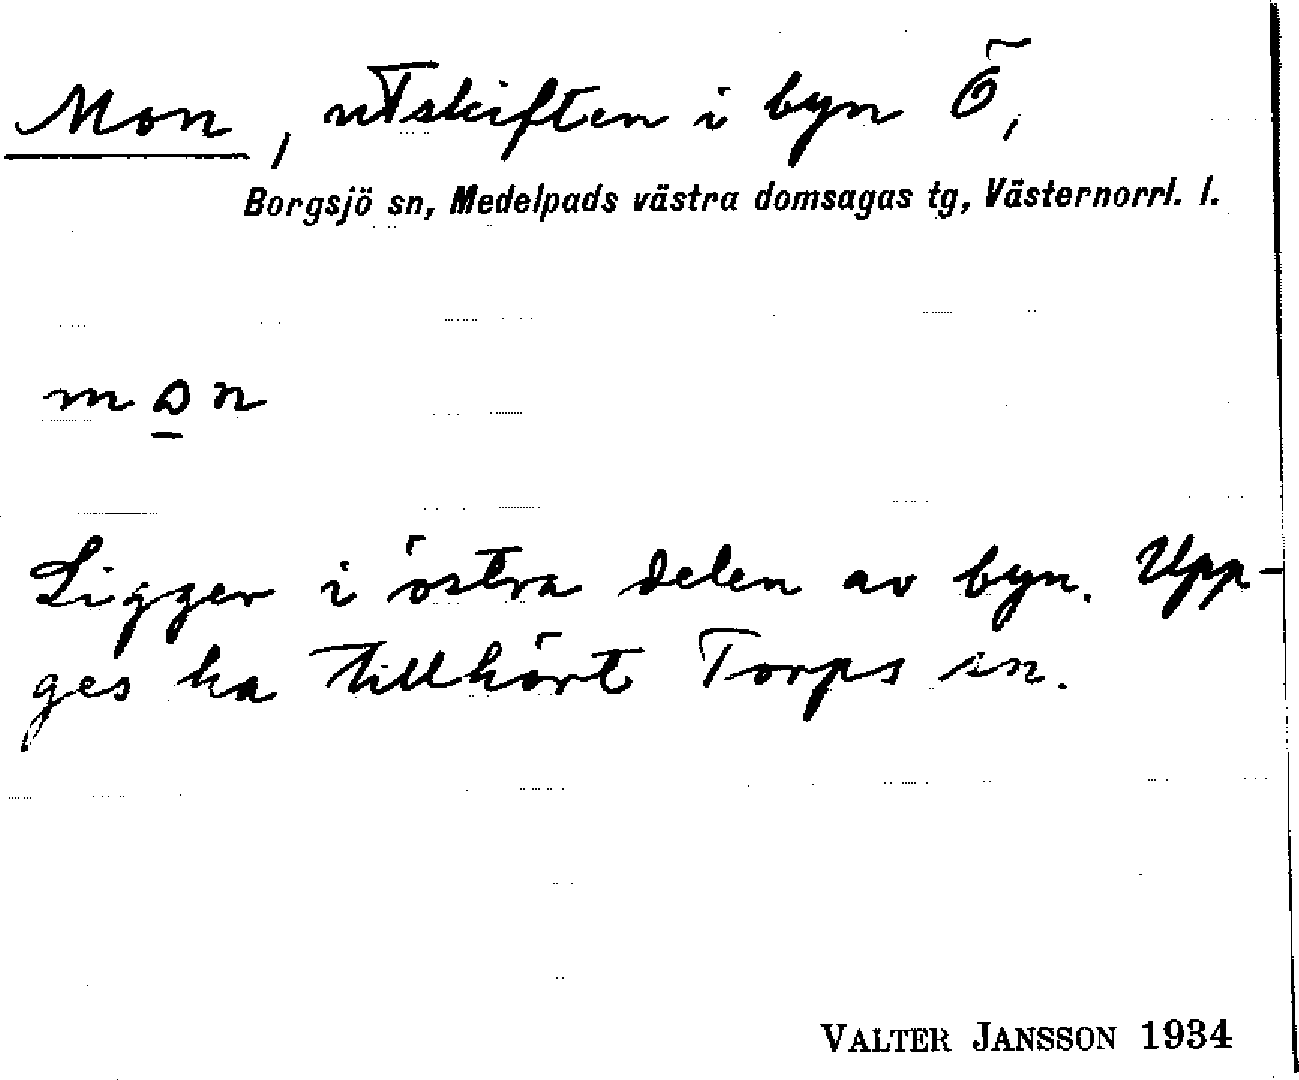 Mon, utskiften i byn Ö,
Borgsjö sn, Medelpads västra domsagas tg, Västernorrl. l.
mon
Ligger i östra delen av byn. Upp-
ges ha tillhört Torps sn.
VALTER JANSSON 1934